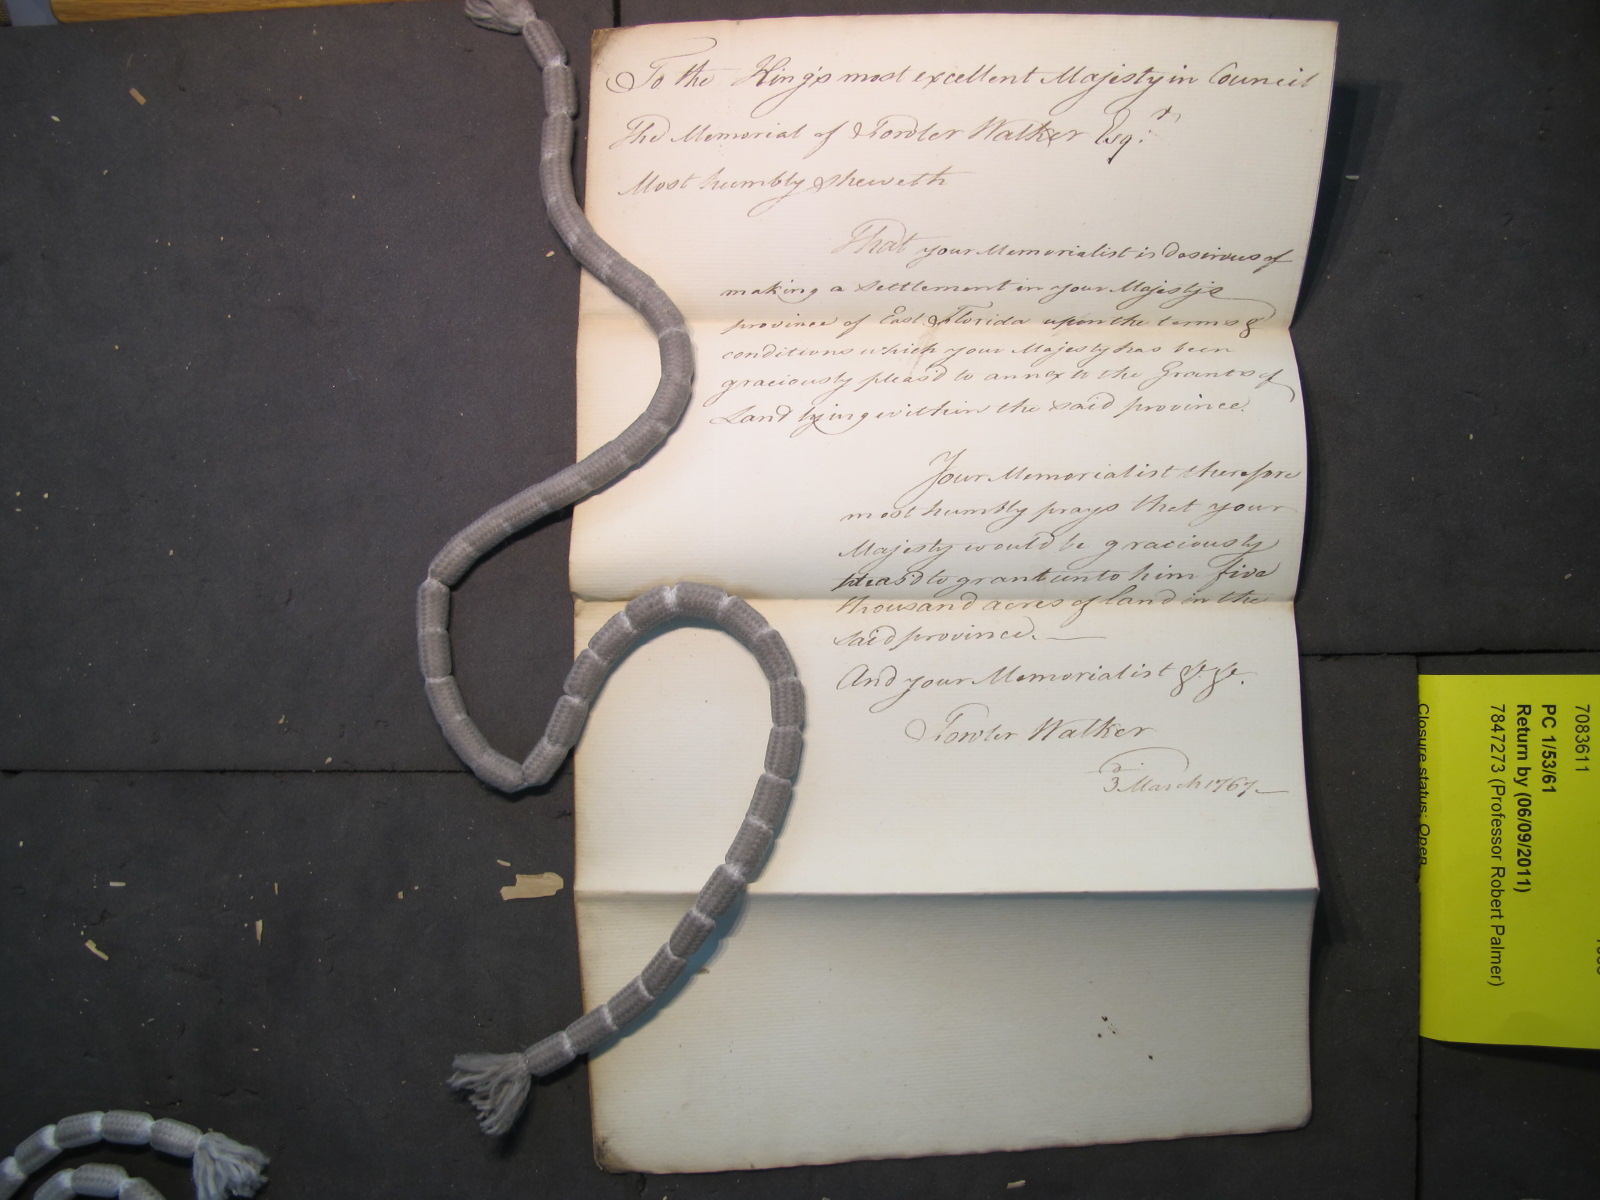 To the King's most excellent Majesty in Council
The Memorial of Fowler Walker Esq.r
Most humbly Sheweth
That your Memorialist is desirous of
making a Settlement in your Majestys
province of East Florida upon the terms &
conditions which your Majesty has been
graciously pleas'd to annex to the Grants of
Land lying within the said province.
Your Memorialist therefore
most humbly prays that your
Majesty would be graciously
pleas'd to grant unto him five
thousand acres of land in the
said province.
And your Memorialist &c. &c.
Fowler Walker
3d March 1767
7083611
PC 1/53/61
Return by (06/09/2011)
7847273 (Professor Robert Palmer)
Closure status: Open